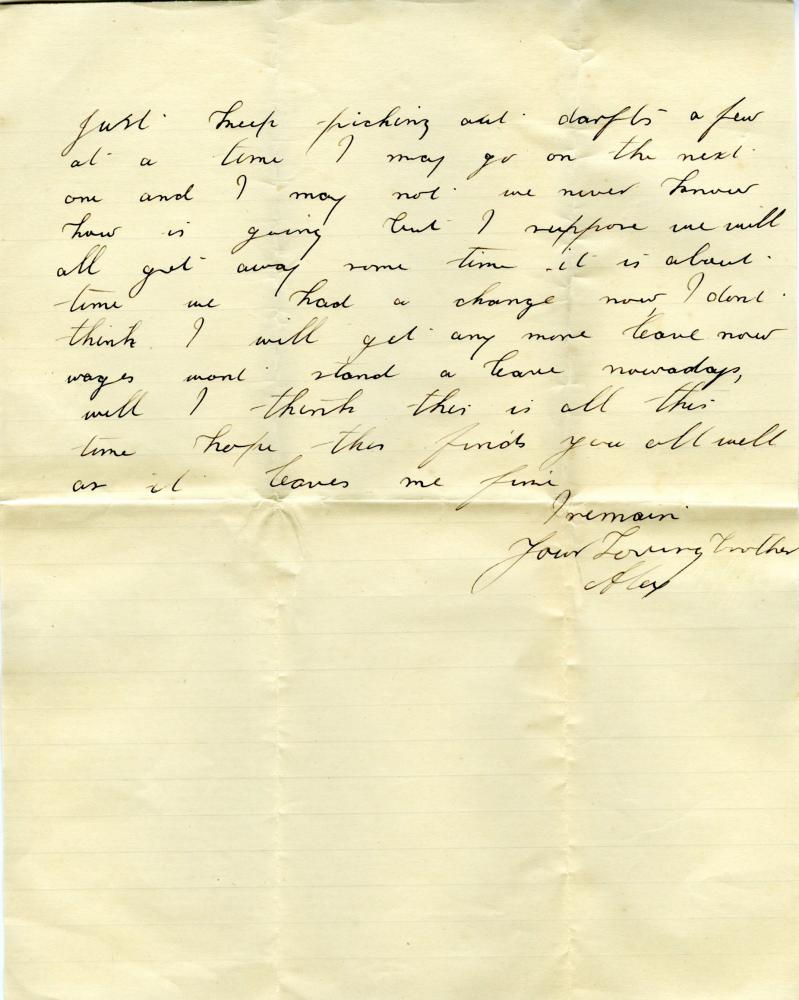 Just keep picking out darfts a few
at a time I may go on the next
one and I may not we never know
how is going but I suppose we will
all get away some time it is about
time we had a change now, I dont
think I will get any more leave now
wages wont stand a leave nowadays,
well I think this is all this
time hope this finds you all well
as it leaves me fine
I remain
Your Loving brother
Alex